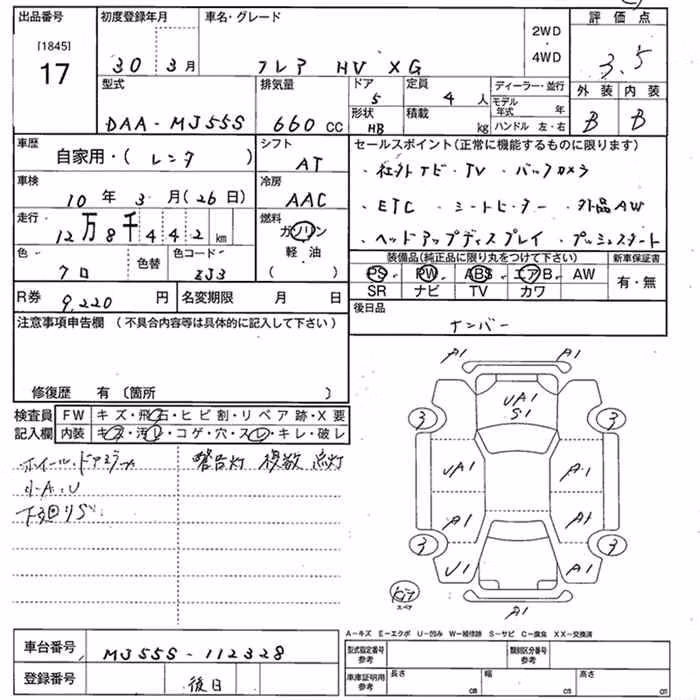 出品番号 初度登録年月 車名・グレード 評価点
[1845]
17
30 3月 フレア HV XG 2WD・4WD 3.5
型式 排気量 ドア 定員 ディーラー・並行 外装 内装
DAA-MJ55S 660 CC 5 4人 モデル年式 年 B B
形状 積載 ハンドル 左・右
HB kg
車歴 シフト セールスポイント(正常に機能するものに限ります)
自家用・( レンタ ) AT ・社外ナビ・TV ・バックカメラ
車検 冷房
10年 3月 (26日) AAC ・ETC ・シートヒーター ・外品AW
走行 燃料
12万8千442km ガソリン ・ヘッドアップディスプレイ ・プッシュスタート
軽・油
( )
色 色替 色コード 装備品(純正品に限り丸をつけて下さい) 新車保証書
クロ ZJ3 PS PW ABS エアB AW 有・無
SR ナビ TV カワ
R券 9,220 円 名変期限 月 日 後日品
ナンバー
注意事項申告欄 (不具合内容等は具体的に記入して下さい)
修復歴 有〔箇所 〕
検査員 FW キズ・飛石・ヒビ割・リペア跡・X要
記入欄 内装 キズ・汚レ・コゲ・穴・スレ・キレ・破レ
ホイール・ドアミラー 警告灯 複数 点灯
小A・U
下回りS
A1 A1
UA1
S1
3 3
UA1 A1
A1 A1
3 3
U1 A1
スペア
A1
A-キズ E-エクボ U-凹み W-補修跡 S-サビ C-腐食 XX-交換済
車台番号 MJ55S-112328 型式指定番号 参考 類別区分番号 参考
登録番号 後日 車庫証明用 参考 長さ cm 幅 cm 高さ cm